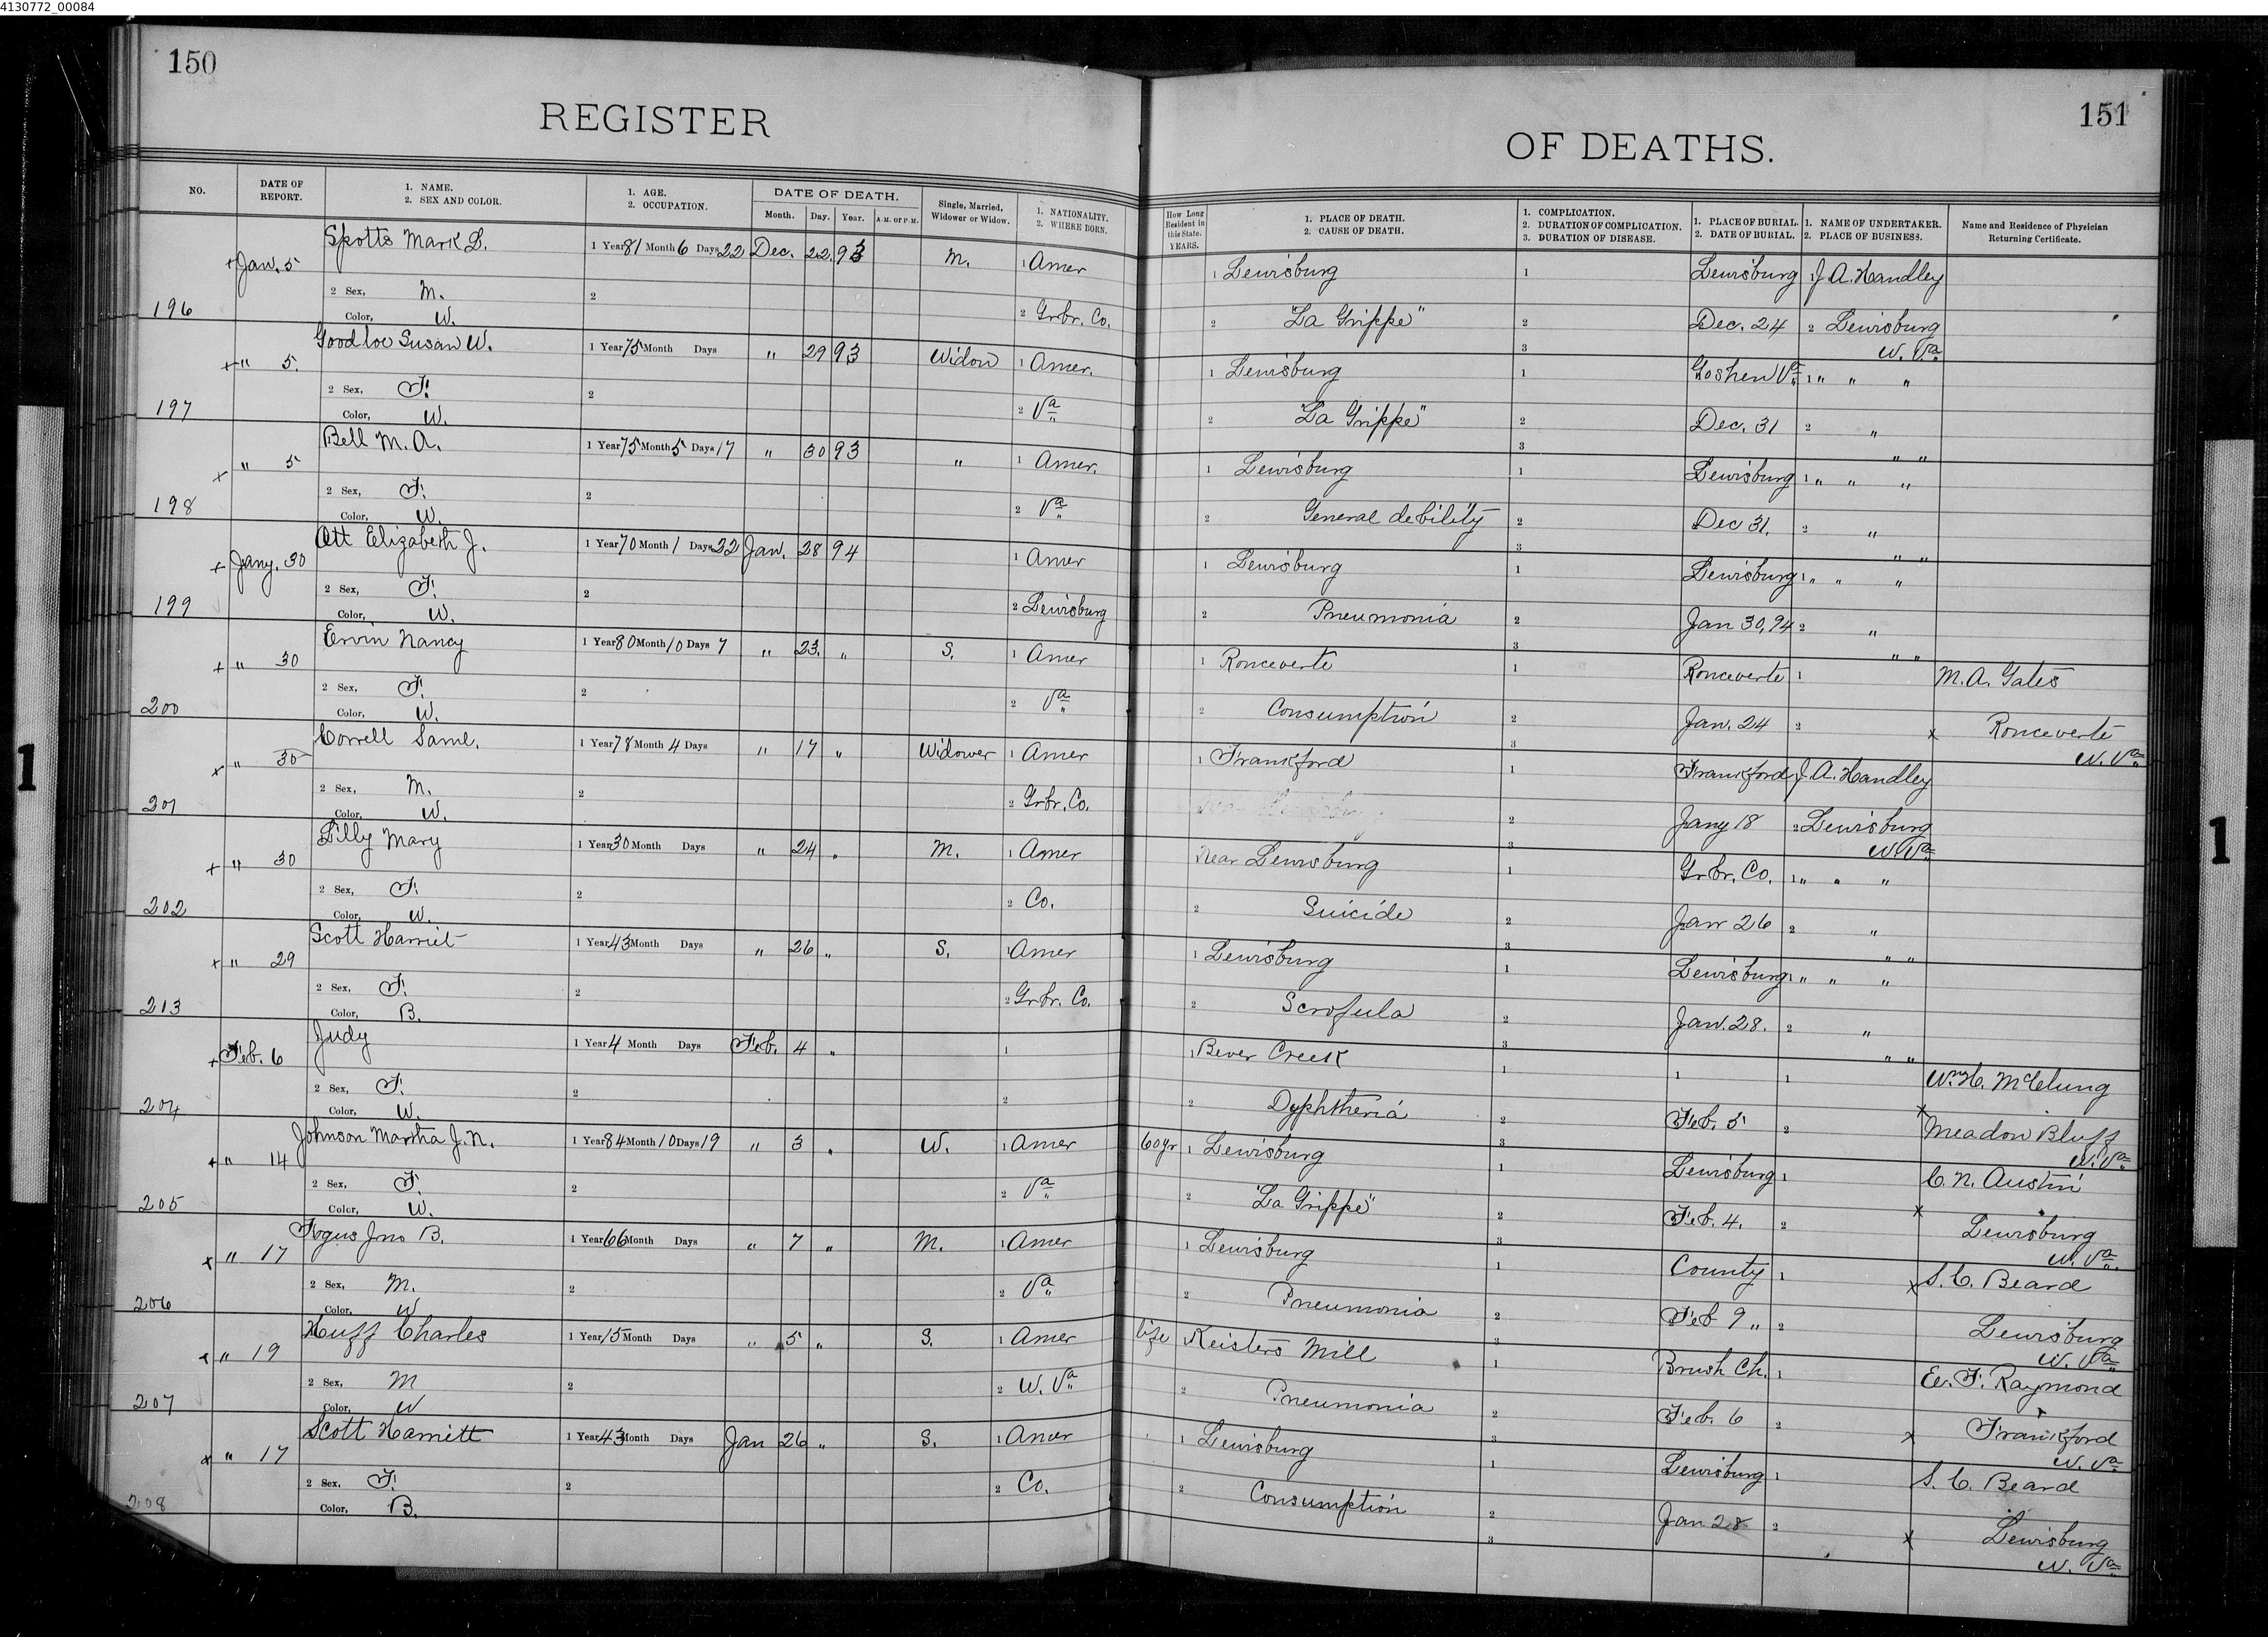 4130772_00084
150
REGISTER
NO.
DATE OF REPORT.
1. NAME.
2. SEX AND COLOR.
1. AGE.
2. OCCUPATION.
DATE OF DEATH.
Month. Day. Year. A.M. or P.M.
Single, Married, Widower or Widow.
1. NATIONALITY.
2. WHERE BORN.
151
OF DEATHS.
How Long Resident in this State. YEARS.
1. PLACE OF DEATH.
2. CAUSE OF DEATH.
1. COMPLICATION.
2. DURATION OF COMPLICATION.
3. DURATION OF DISEASE.
1. PLACE OF BURIAL.
2. DATE OF BURIAL.
1. NAME OF UNDERTAKER.
2. PLACE OF BUSINESS.
Name and Residence of Physician Returning Certificate.
+ Jan. 5 Spotts Mark L. 1 Year 81 Month 6 Days 22 Dec. 22. 93 M. 1 Amer 1 Lewisburg 1 Lewisburg 1 J. A. Handley
196 2 Sex, M. 2 2 Grbr. Co. 2 "La Grippe" 2 Dec. 24 2 Lewisburg
Color, W. 3 W. Va
+ " 5. Goodloe Susan W. 1 Year 75 Month Days " 29 93 Widow 1 Amer. 1 Lewisburg 1 Goshen Va 1 " " "
197 2 Sex, F. 2 2 Va 2 "La Grippe" 2 Dec. 31 2 "
Color, W. 3 " "
+ " 5 Bell M. A. 1 Year 75 Month 5 Days 17 " 30 93 " 1 Amer. 1 Lewisburg 1 Lewisburg 1 " " "
198 2 Sex, F. 2 2 Va 2 General debility 2 Dec 31, 2 "
Color, W. 3 " "
+ Jany. 30 Ott Elizabeth J. 1 Year 70 Month 1 Days 22 Jan. 28 94 1 Amer 1 Lewisburg 1 Lewisburg 1 " " "
199 2 Sex, F. 2 2 Lewisburg 2 Pneumonia 2 Jan 30, 94 2 "
Color, W. 3 " "
+ " 30 Ervin Nancy 1 Year 80 Month 10 Days 7 " 23. " S. 1 Amer 1 Ronceverte 1 Ronceverte 1 M. A. Gates
200 2 Sex, F. 2 2 Va 2 Consumption 2 Jan. 24 2 x Ronceverte
Color, W. 3 W. Va
x " 30 Correll Saml. 1 Year 78 Month 4 Days " 17 " Widower 1 Amer 1 Frankford 1 Frankford J. A. Handley
201 2 Sex, M. 2 2 Grbr. Co. 2 Jany 18 2 Lewisburg
Color, W. 3 W. Va
+ " 30 Lilly Mary 1 Year 30 Month Days " 24 " M. 1 Amer Near Lewisburg 1 Grbr. Co. 1 " " "
202 2 Sex, F. 2 2 Co. 2 Suicide 2 Jan 26 2 "
Color, W. 3 " "
x " 29 Scott Harriet 1 Year 43 Month Days " 26 " S. 1 Amer 1 Lewisburg 1 Lewisburg 1 " " "
213 2 Sex, F. 2 2 Grbr. Co. 2 Scrofula 2 Jan. 28. 2 "
Color, B. 3 " "
+ Feb. 6 Judy 1 Year 4 Month Days Feb. 4 " 1 1 Bever Creek 1 1 1 Wm H. McClung
204 2 Sex, F. 2 2 2 Dyphtheria 2 Feb. 5 2 x Meadow Bluff
Color, W. 3 W. Va
+ " 14 Johnson Martha J. N. 1 Year 84 Month 10 Days 19 " 3 " W. 1 Amer 60 yr 1 Lewisburg 1 Lewisburg 1 C. N. Austin
205 2 Sex, F. 2 2 Va 2 "La Grippe" 2 Feb. 4. 2 x Lewisburg
Color, W. 3 W. Va
x " 17 Fogus Jno B. 1 Year 66 Month Days " 7 " M. 1 Amer 1 Lewisburg 1 County 1 x S. C. Beard
206 2 Sex, M. 2 2 Va 2 Pneumonia 2 Feb 9 " 2 Lewisburg
Color, W 3 W. Va
x " 19 Huff Charles 1 Year 15 Month Days " 5 " S. 1 Amer life 1 Keisters Mill 1 Brush Ch. 1 E. F. Raymond
207 2 Sex, M 2 2 W. Va 2 Pneumonia 2 Feb. 6 2 x Frankford
Color, W 3 W. Va
x " 17 Scott Harriett 1 Year 43 Month Days Jan 26 " S. 1 Amer 1 Lewisburg 1 Lewisburg 1 S. C. Beard
208 2 Sex, F. 2 2 Co. 2 Consumption 2 Jan 28 2 x Lewisburg
Color, B. 3 W. Va
1
1